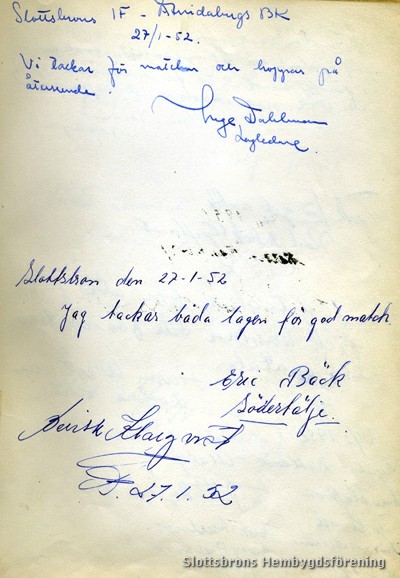 Slottsbrons IF - Åtvidabergs BK
27/1-52.
Vi tackar för matchen och hoppas på
återseende.
Inge Dahlman
Lagledare
Slottsbron den 27-1-52
Jag tackar båda lagen för god match
Eric Bäck
Södertälje
D. 27.1.52
Slottsbrons Hembygdsförening